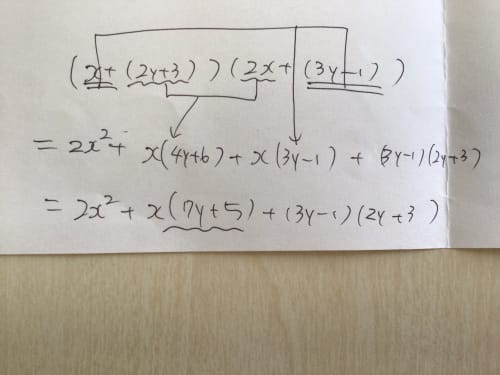 (x+(2y+3))(2x+(3y-1))
=2x²+x(4y+6)+x(3y-1)+(3y-1)(2y+3)
=2x²+x(7y+5)+(3y-1)(2y+3)